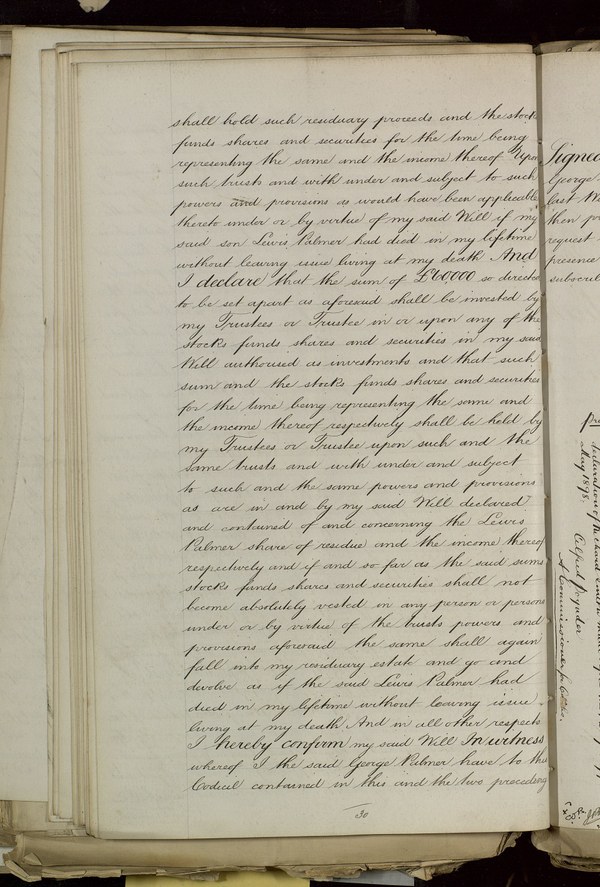 shall hold such residuary proceeds and the stock
funds shares and securities for the time being
representing the same and the income thereof Upon
such trusts and with under and subject to such
powers and provisions as would have been applicable
thereto under or by virtue of my said Will if my
said son Lewis Palmer had died in my lifetime
without leaving issue living at my death And
I declare that the sum of £60,000 so directed
to be set apart as aforesaid shall be invested by
my Trustees or Trustee in or upon any of the
stocks funds shares and securities in my said
Will authorised as investments and that such
sum and the stocks funds shares and securities
for the time being representing the same and
the income thereof respectively shall be held by
my Trustees or Trustee upon such and the
same trusts and with under and subject
to such and the same powers and provisions
as are in and by my said Will declared
and contained of and concerning the Lewis
Palmer share of residue and the income thereof
respectively and if and so far as the said sums
stocks funds shares and securities shall not
become absolutely vested in any person or persons
under or by virtue of the trusts powers and
provisions aforesaid the same shall again
fall into my residuary estate and go and
devolve as if the said Lewis Palmer had
died in my lifetime without leaving issue
living at my death And in all other respects
I hereby confirm my said Will In witness
whereof I the said George Palmer have to this
Codicil contained in this and the two preceding
30
Signed
George
last
then
request
presence
subscri
declaration of
May 1898.
Alfred Poynder
A Commissioner